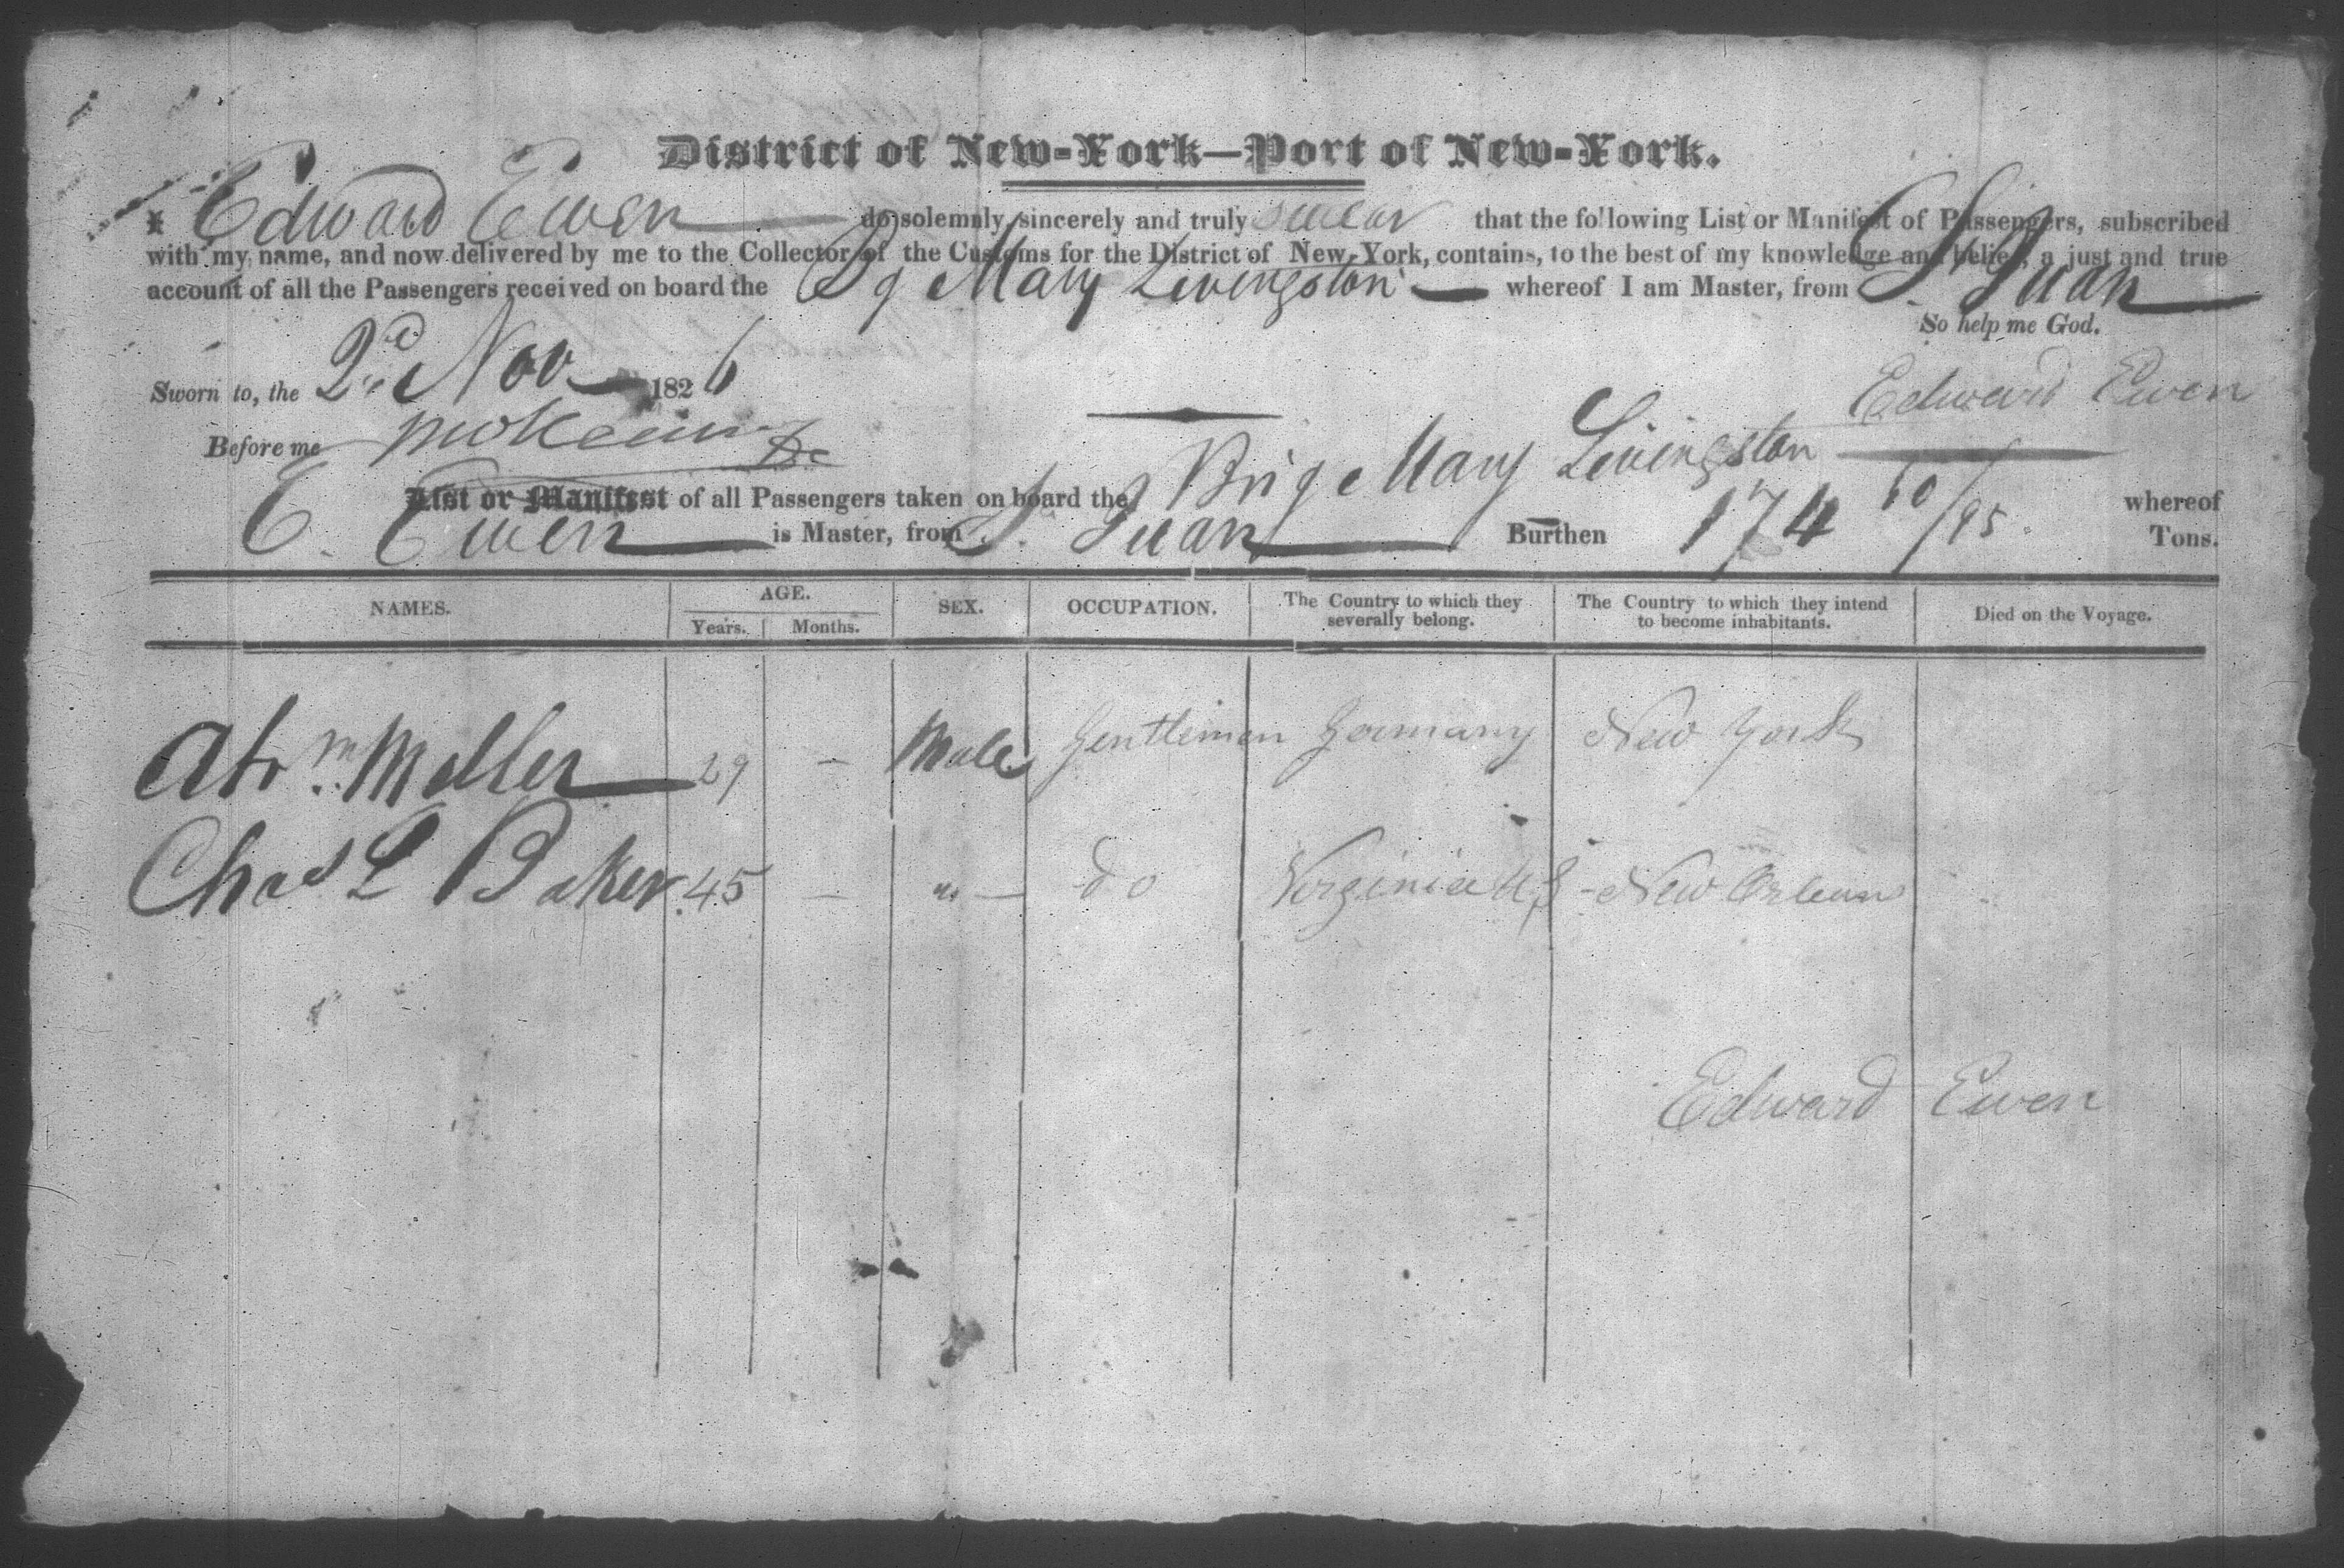 District of New-York—Port of New-York.
I Edward Ewen do solemnly, sincerely and truly swear that the following List or Manifest of Passengers, subscribed
with my name, and now delivered by me to the Collector of the Customs for the District of New-York, contains, to the best of my knowledge and belief, a just and true
account of all the Passengers received on board the Bg Mary Livingston whereof I am Master, from St Juan
So help me God.
Sworn to, the 2d Nov 1826
Edward Ewen
Before me
List or Manifest of all Passengers taken on board the Brig Mary Livingston whereof
E. Ewen is Master, from St. Juan Burthen 174 60/95 Tons.
NAMES. AGE. SEX. OCCUPATION. The Country to which they severally belong. The Country to which they intend to become inhabitants. Died on the Voyage.
Years. Months.
Abrm Meller 29 — Male Gentleman Germany New York
Chas L Baker 45 — " — do Virginia U S - New Orleans
Edward Ewen